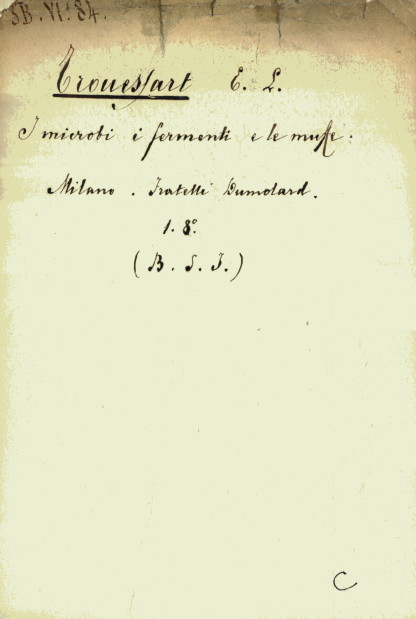 3B. VI. 84.
Trouessart E. L.
I microbi i fermenti e le muffe:
Milano. Fratelli Dumolard.
1. 8º.
(B. S. I.)
C